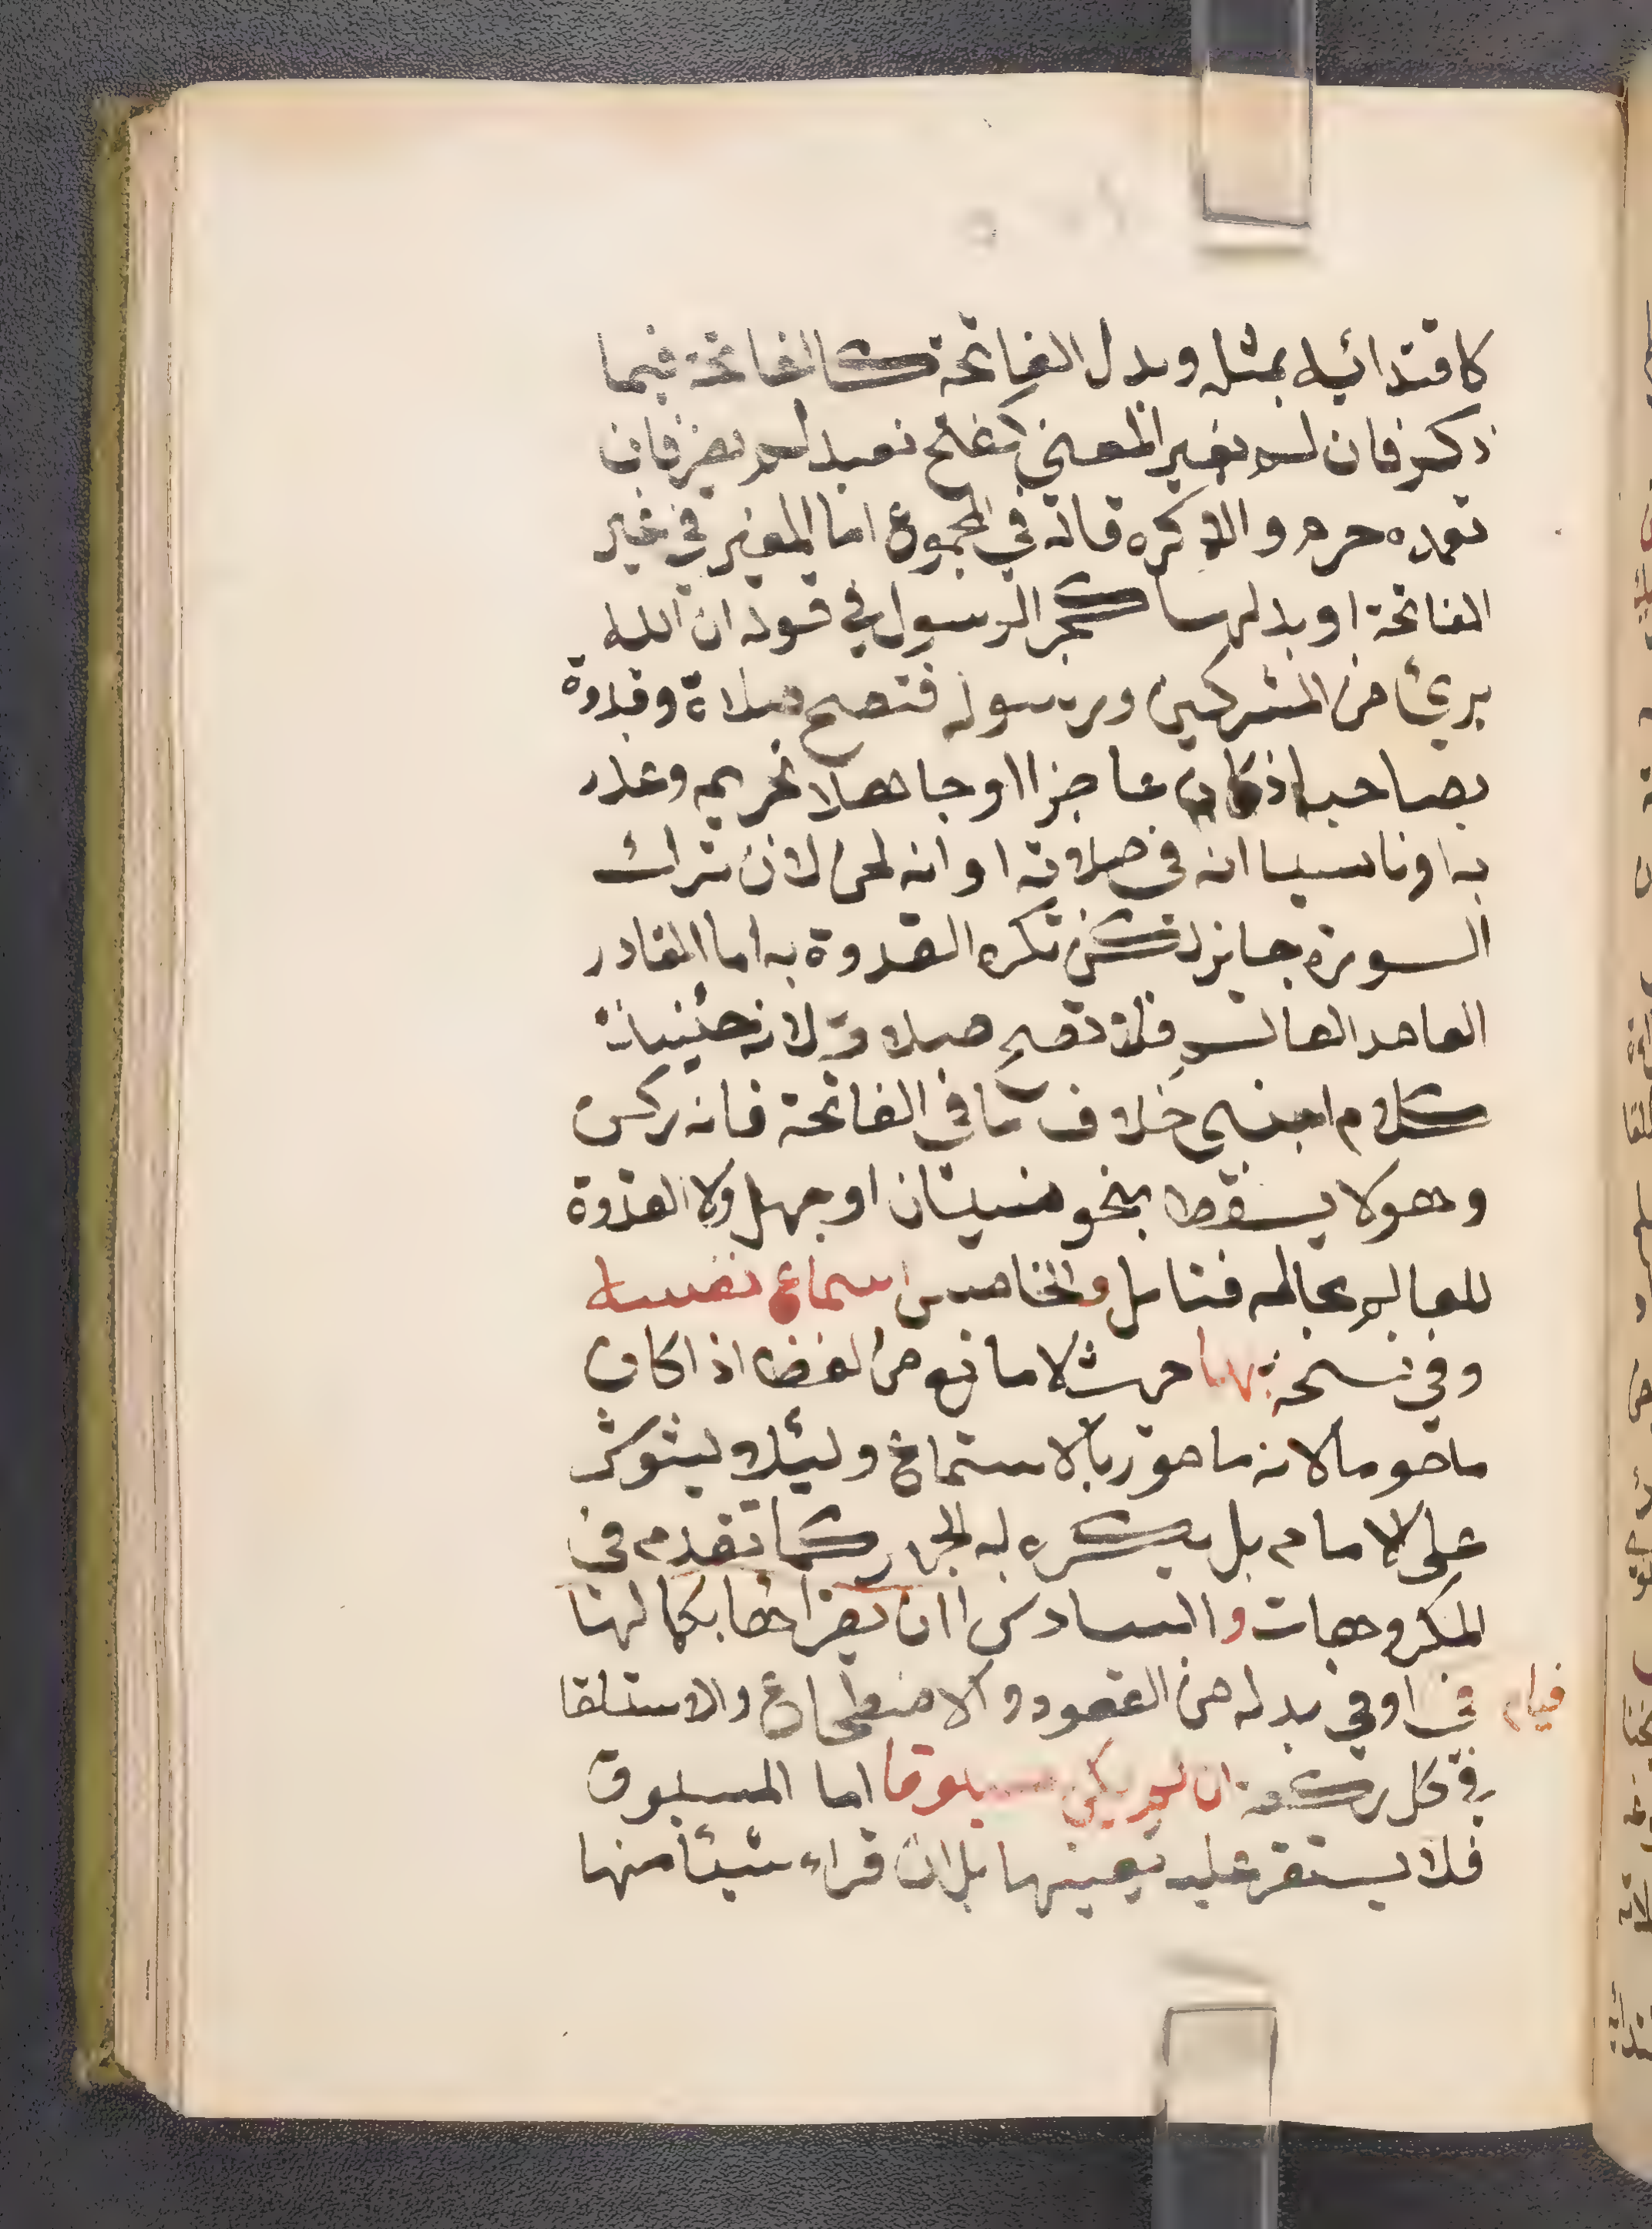 كاقتدائه بمثله وبدل الفاتحة كالفاتحة فيما
ذكر فان لم يغير المعنى كفتح نعبد لم يضر فان
تعمده حرم والا كره قاله في المجموع اما المغير في غير
الفاتحة او بدلها كجر الرسول في قوله ان الله
برئ من المشركين ورسوله فتصح صلاة وقدوة
بصاحبه اذ كان عاجزا او جاهلا تحريمه وعذر
به او ناسيا انه في صلاته او انه لحن لان ترك
السورة جايز لكن تكره القدوة به اما القادر
العامد العالم فلا تصح صلاته لانه حينئذ
كلام اجنبي خلاف ما في الفاتحة فانه ركن
وهو لا يسقط بنحو نسيان او جهل ولا القدوة
للعالم بحاله فتامل والخامس اسماع نفسه
وفي نسخة بها حيث لا مانع من لغط اذا كان
ماموما لانه مامور بالاستماع وليلا يشوش
على الامام بل يكره له الجهر كما تقدم في
المكروهات والسادس ان يقراها بكمالها
في قيام او في بدله من القعود والاضطجاع والاستلقا
في كل ركعة ان لم يكن مسبوقا اما المسبوق
فلا يستقر عليه تعينها بل ان قراء شيئا منها